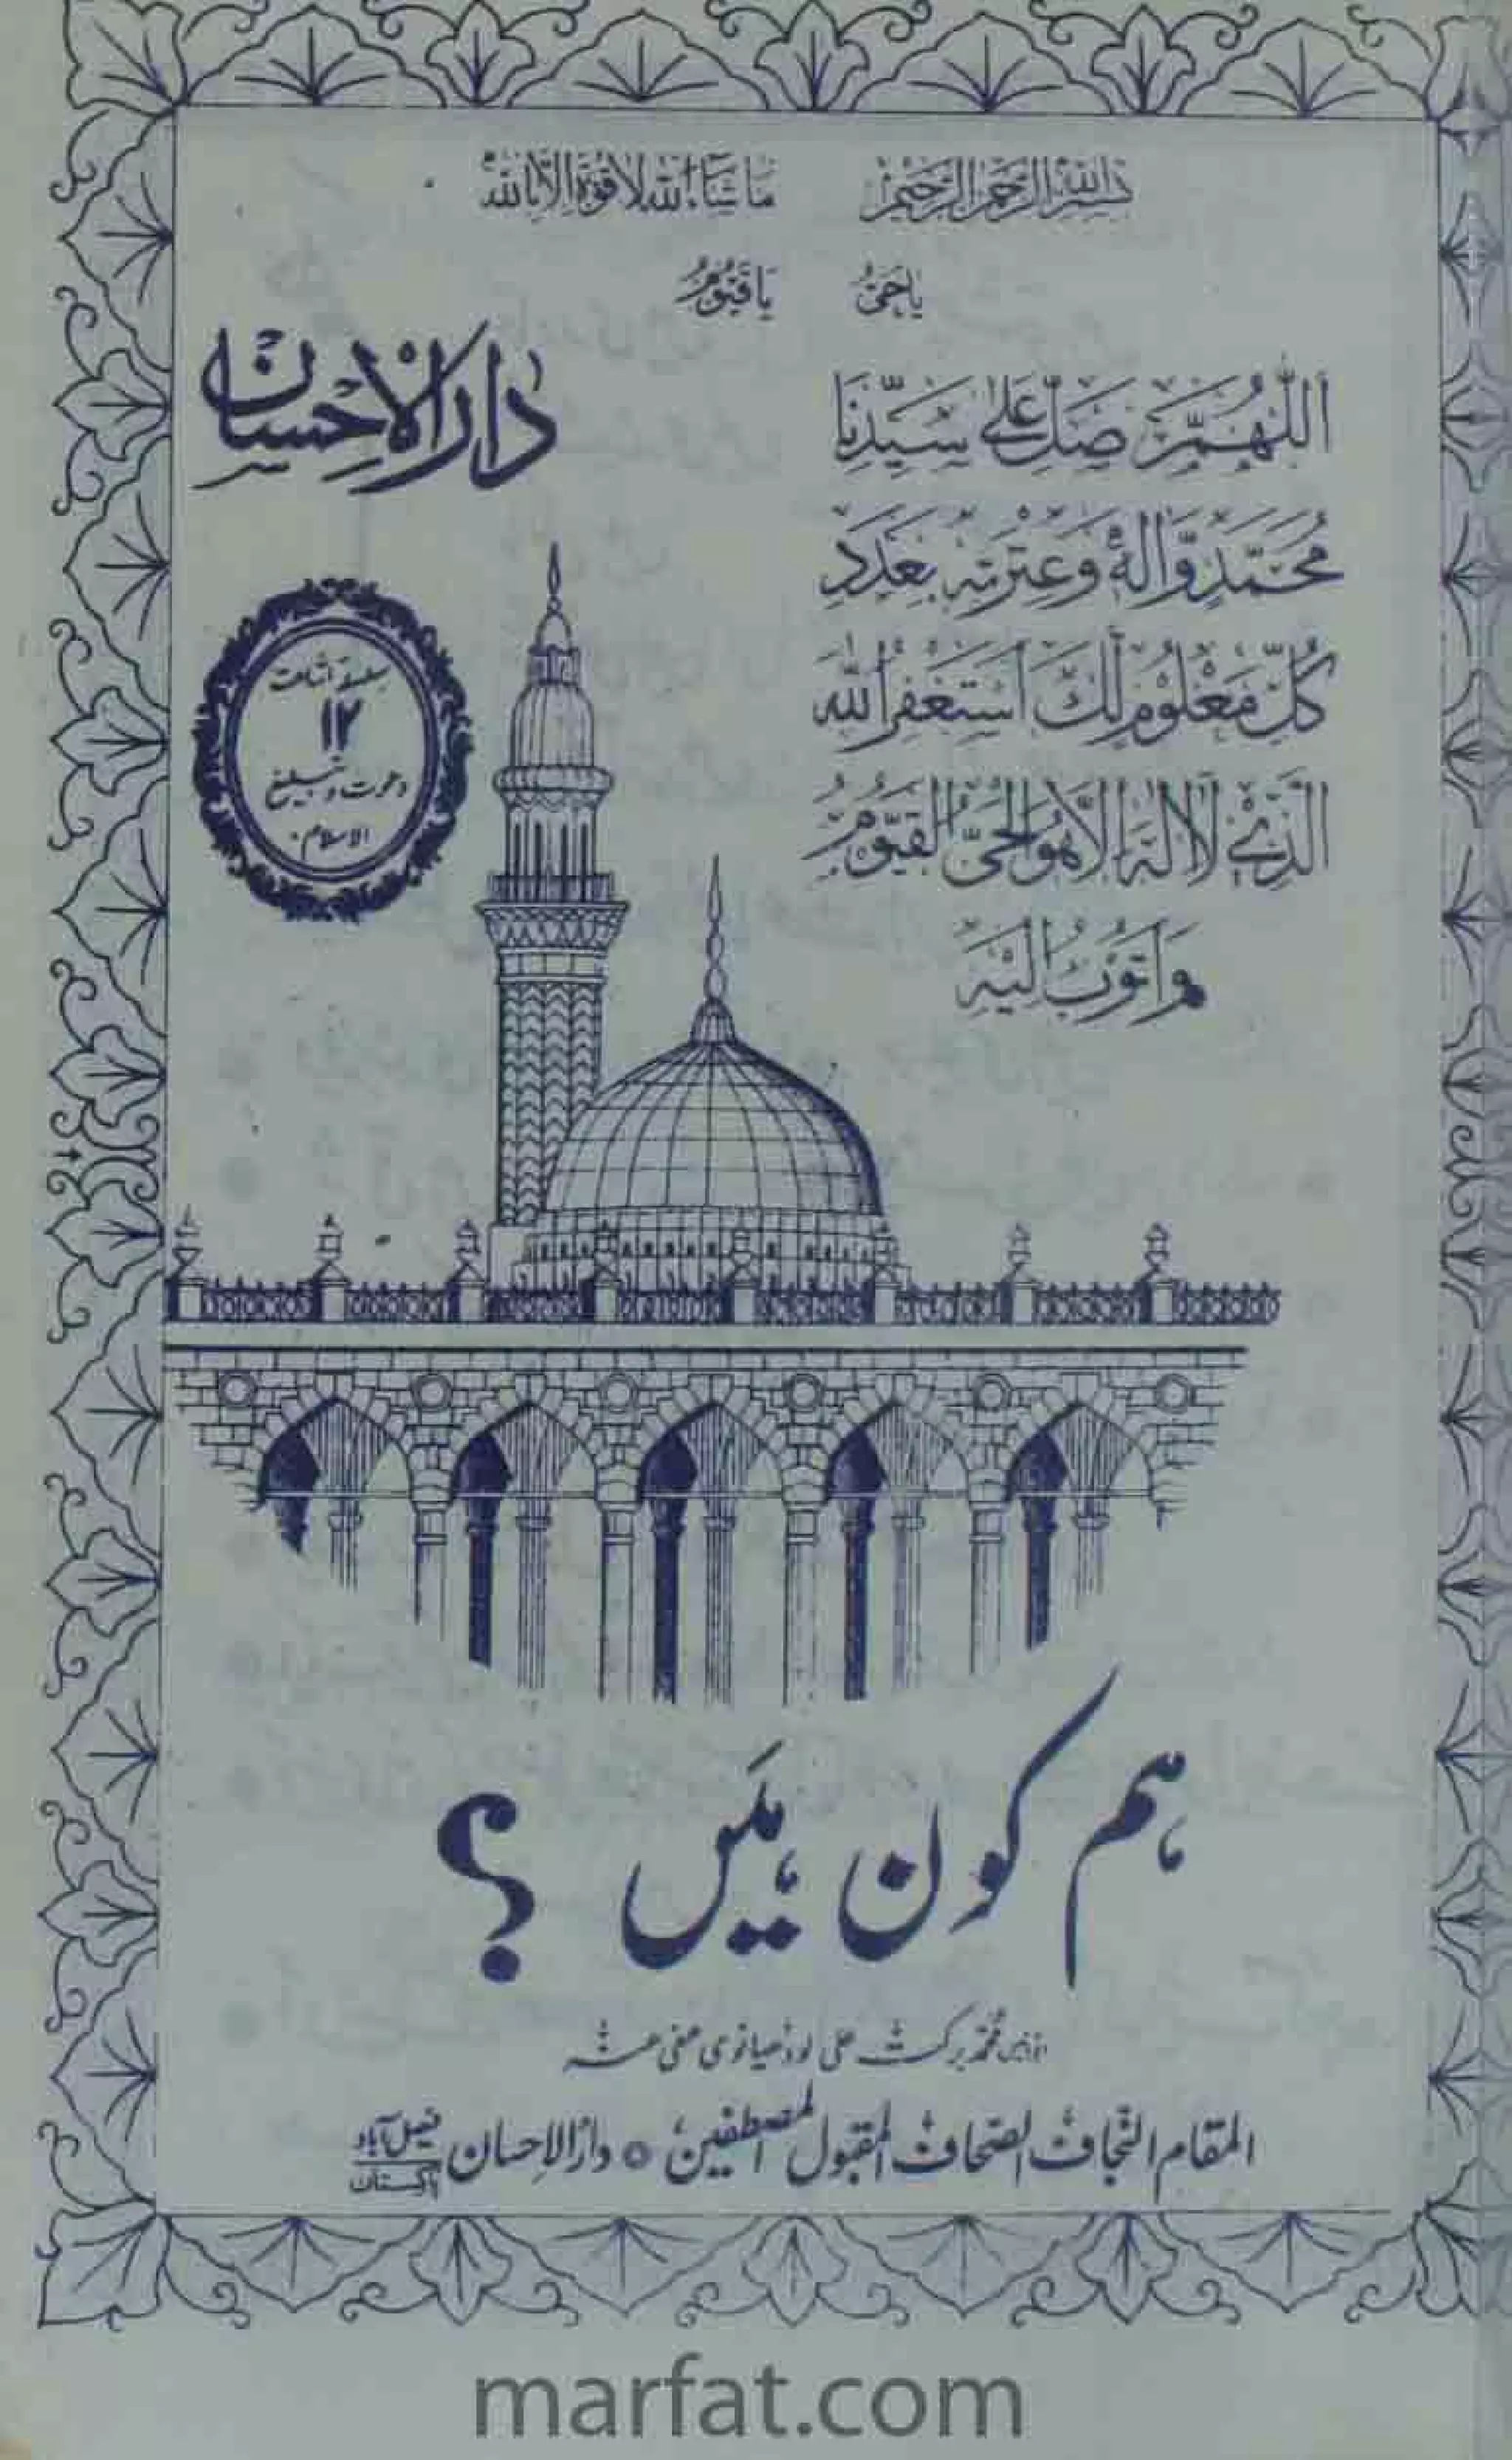 بِسْمِ اللهِ الرَّحْمٰنِ الرَّحِيْمِ مَا شَآءَ اللهُ لَا قُوَّةَ اِلَّا بِاللهِ
يَا حَيُّ يَا قَيُّوْمُ
دارالاحسان
اَللّٰهُمَّ صَلِّ عَلٰى سَيِّدِنَا
مُحَمَّدٍ وَّاٰلِهٖ وَعِتْرَتِهٖ بِعَدَدِ
كُلِّ مَعْلُوْمٍ لَّكَ اَسْتَغْفِرُ اللهَ
الَّذِيْ لَا اِلٰهَ اِلَّا هُوَ الْحَيُّ الْقَيُّوْمُ
وَاَتُوْبُ اِلَيْهِ
سلسلۂ اشاعت
۱۲
دعوت و تبلیغ
الاسلام
ہم کون ہیں ؟
محمد برکت علی لودھیانوی عفی عنہ
المقام النجاف الصحاف المقبول المصطفین ○ دارالاحسان فیصل آباد
پاکستان
marfat.com